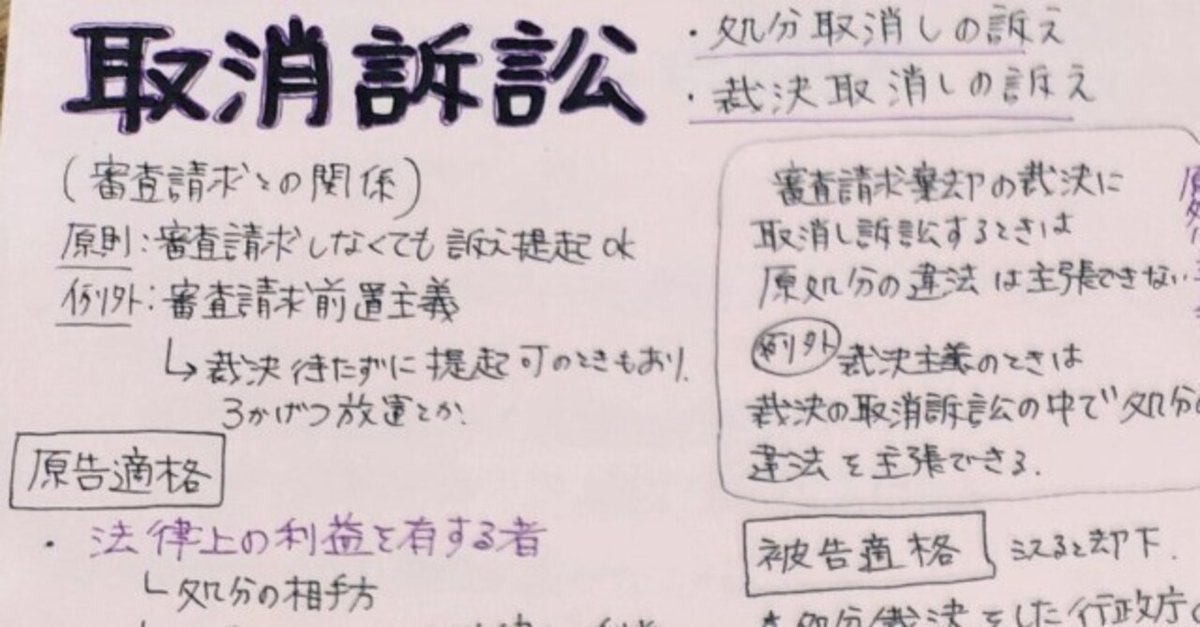 取消訴訟
・処分取消しの訴え
・裁決取消しの訴え
(審査請求との関係)
原則：審査請求しなくても訴え提起ok
例外：審査請求前置主義
↳裁決待たずに提起可のときもあり.
3かげつ放置とか.
原告適格
・法律上の利益を有する者
└処分の相手方
審査請求棄却の裁決に
取消し訴訟するときは
原処分の違法は主張できない
例外 裁決主義のときは
裁決の取消訴訟の中で処分の
違法を主張できる.
被告適格 ミスると却下.
処分裁決をした行政庁の